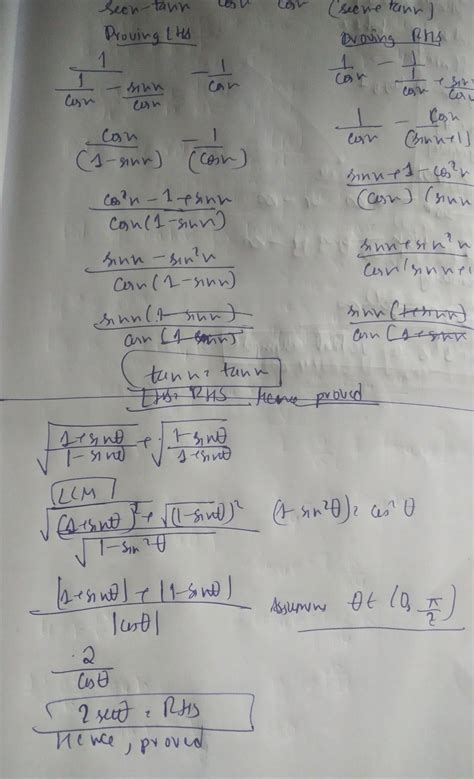 secn-tann cosn cosn (secn+tann)
Proving LHS
1 / (1/cosn - sinn/cosn) - 1/cosn
cosn / (1-sinn) - 1/(cosn)
cos²n - 1 + sinn / cosn(1-sinn)
sinn - sin²n / cosn(1-sinn)
sinn(1-sinn) / cosn(1-sinn)
Proving RHS
1/cosn - 1 / (1/cosn + sinn
1/cosn - cosn / (sinn+1)
sinn+1-cos²n / (cosn)(sinn
sinn+sin²n / cosn(sinn+
sinn(1+sinn) / cosn(1+sinn
tann = tann
LHS = RHS Hence proved
√(1+sinθ / 1-sinθ) + √(1-sinθ / 1+sinθ)
LCM
√(1+sinθ)² + √(1-sinθ)² / √1-sin²θ (1-sin²θ) = cos²θ
|1+sinθ| + |1-sinθ| / |cosθ| Assuming θ∈(0, π/2)
2 / cosθ
2secθ = RHS
Hence, proved